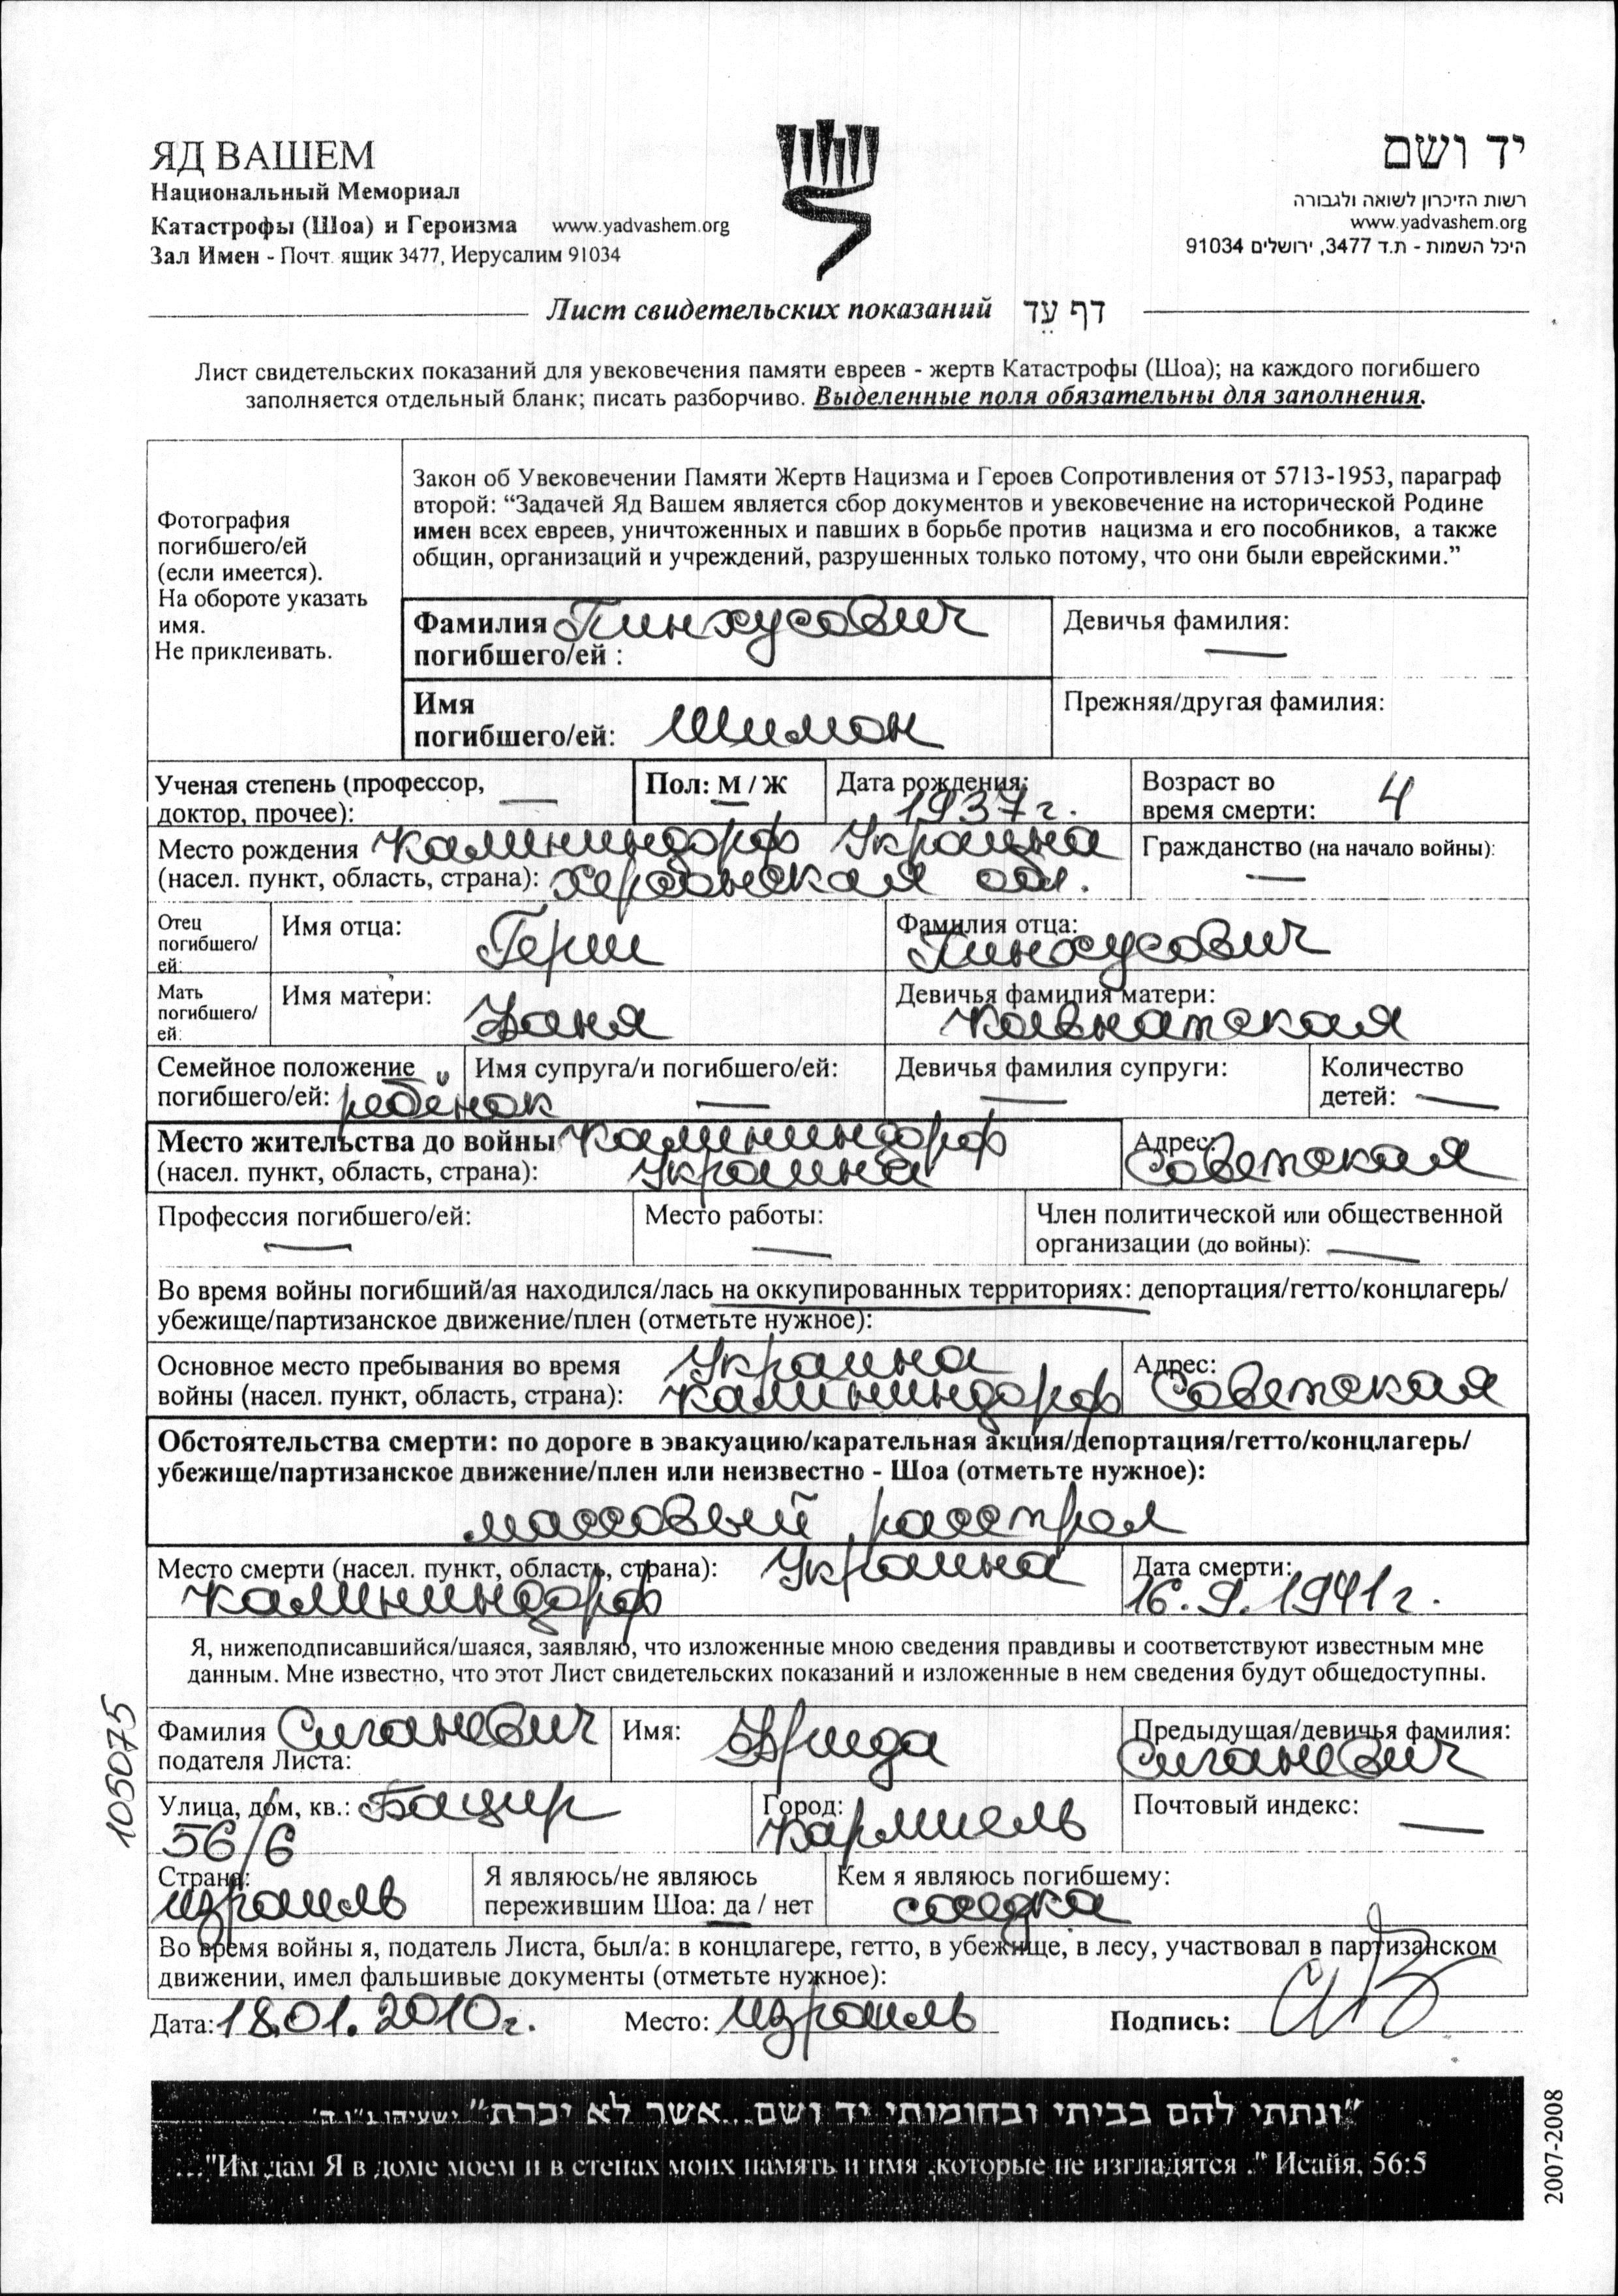 ЯД ВАШЕМ
Национальный Мемориал
Катастрофы (Шоа) и Героизма www.yadvashem.org
Зал Имен - Почт. ящик 3477, Иерусалим 91034
יד ושם
רשות הזיכרון לשואה ולגבורה
www.yadvashem.org
היכל השמות - ת.ד 3477, ירושלים 91034
Лист свидетельских показаний דף עֵד
Лист свидетельских показаний для увековечения памяти евреев - жертв Катастрофы (Шоа); на каждого погибшего
заполняется отдельный бланк; писать разборчиво. Выделенные поля обязательны для заполнения.
Фотография
погибшего/ей
(если имеется).
На обороте указать
имя.
Не приклеивать.
Закон об Увековечении Памяти Жертв Нацизма и Героев Сопротивления от 5713-1953, параграф
второй: “Задачей Яд Вашем является сбор документов и увековечение на исторической Родине
имен всех евреев, уничтоженных и павших в борьбе против нацизма и его пособников, а также
общин, организаций и учреждений, разрушенных только потому, что они были еврейскими.”
Фамилия Пинхусович
погибшего/ей :
Девичья фамилия:
—
Имя
погибшего/ей: Шимон
Прежняя/другая фамилия:
Ученая степень (профессор,
доктор, прочее): —
Пол: М / Ж
Дата рождения:
1937 г.
Возраст во
время смерти: 4
Место рождения Калининдорф Украина
(насел. пункт, область, страна): Херсонская обл.
Гражданство (на начало войны):
—
Отец
погибшего/
ей:
Имя отца: Герш
Фамилия отца:
Пинхусович
Мать
погибшего/
ей:
Имя матери: Фаня
Девичья фамилия матери:
Ковнатская
Семейное положение
погибшего/ей: ребёнок
Имя супруга/и погибшего/ей:
—
Девичья фамилия супруги:
—
Количество
детей: —
Место жительства до войны Калининдорф
(насел. пункт, область, страна): Украина
Адрес:
Советская
Профессия погибшего/ей:
—
Место работы:
—
Член политической или общественной
организации (до войны): —
Во время войны погибший/ая находился/лась на оккупированных территориях: депортация/гетто/концлагерь/
убежище/партизанское движение/плен (отметьте нужное):
Основное место пребывания во время Украина
войны (насел. пункт, область, страна): Калининдорф
Адрес:
Советская
Обстоятельства смерти: по дороге в эвакуацию/карательная акция/депортация/гетто/концлагерь/
убежище/партизанское движение/плен или неизвестно - Шоа (отметьте нужное):
массовый расстрел
Место смерти (насел. пункт, область, страна): Украина
Калининдорф
Дата смерти:
16.9.1941 г.
Я, нижеподписавшийся/шаяся, заявляю, что изложенные мною сведения правдивы и соответствуют известным мне
данным. Мне известно, что этот Лист свидетельских показаний и изложенные в нем сведения будут общедоступны.
105075
Фамилия Сиганевич
подателя Листа:
Имя: Фрида
Предыдущая/девичья фамилия:
Сиганевич
Улица, дом, кв.: Бацир
56/6
Город:
Кармиель
Почтовый индекс:
—
Страна:
Израиль
Я являюсь/не являюсь
пережившим Шоа: да / нет
Кем я являюсь погибшему:
соседка
Во время войны я, податель Листа, был/а: в концлагере, гетто, в убежище, в лесу, участвовал в партизанском
движении, имел фальшивые документы (отметьте нужное):
Дата: 18.01.2010 г. Место: Израиль Подпись:
“ונתתי להם בביתי ובחומותי יד ושם...אשר לא יכרת” ישעיהו נ"ו ה'
..."Им дам Я в доме моем и в стенах моих память и имя ,которые не изгладятся ." Исайя, 56:5
2007-2008